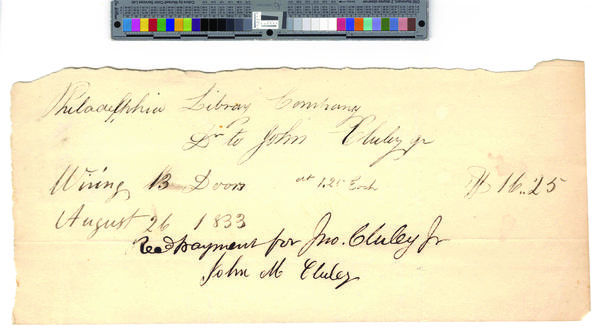 Philadelphia Library Company
Dr to John Cluley jr
Wiring 13 Doors at 1.25 Each $16..25
August 26 1833
Recd payment for Jno. Cluley Jr
John M Cluley